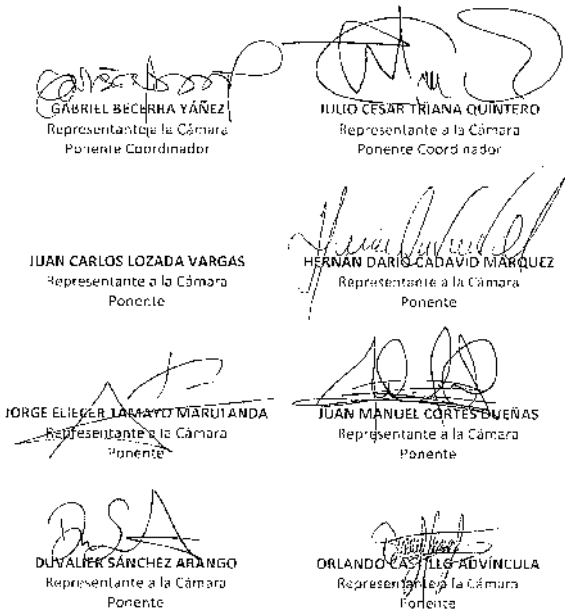 GABRIEL BECERRA YÁÑEZ
Representante a la Cámara
Ponente Coordinador
JULIO CESAR TRIANA QUINTERO
Representante a la Cámara
Ponente Coordinador
JUAN CARLOS LOZADA VARGAS
Representante a la Cámara
Ponente
HERNÁN DARÍO CADAVID MÁRQUEZ
Representante a la Cámara
Ponente
JORGE ELIECER TAMAYO MARULANDA
Representante a la Cámara
Ponente
JUAN MANUEL CORTES DUEÑAS
Representante a la Cámara
Ponente
DUVALIER SÁNCHEZ ARANGO
Representante a la Cámara
Ponente
ORLANDO CASTILLO ADVÍNCULA
Representante a la Cámara
Ponente